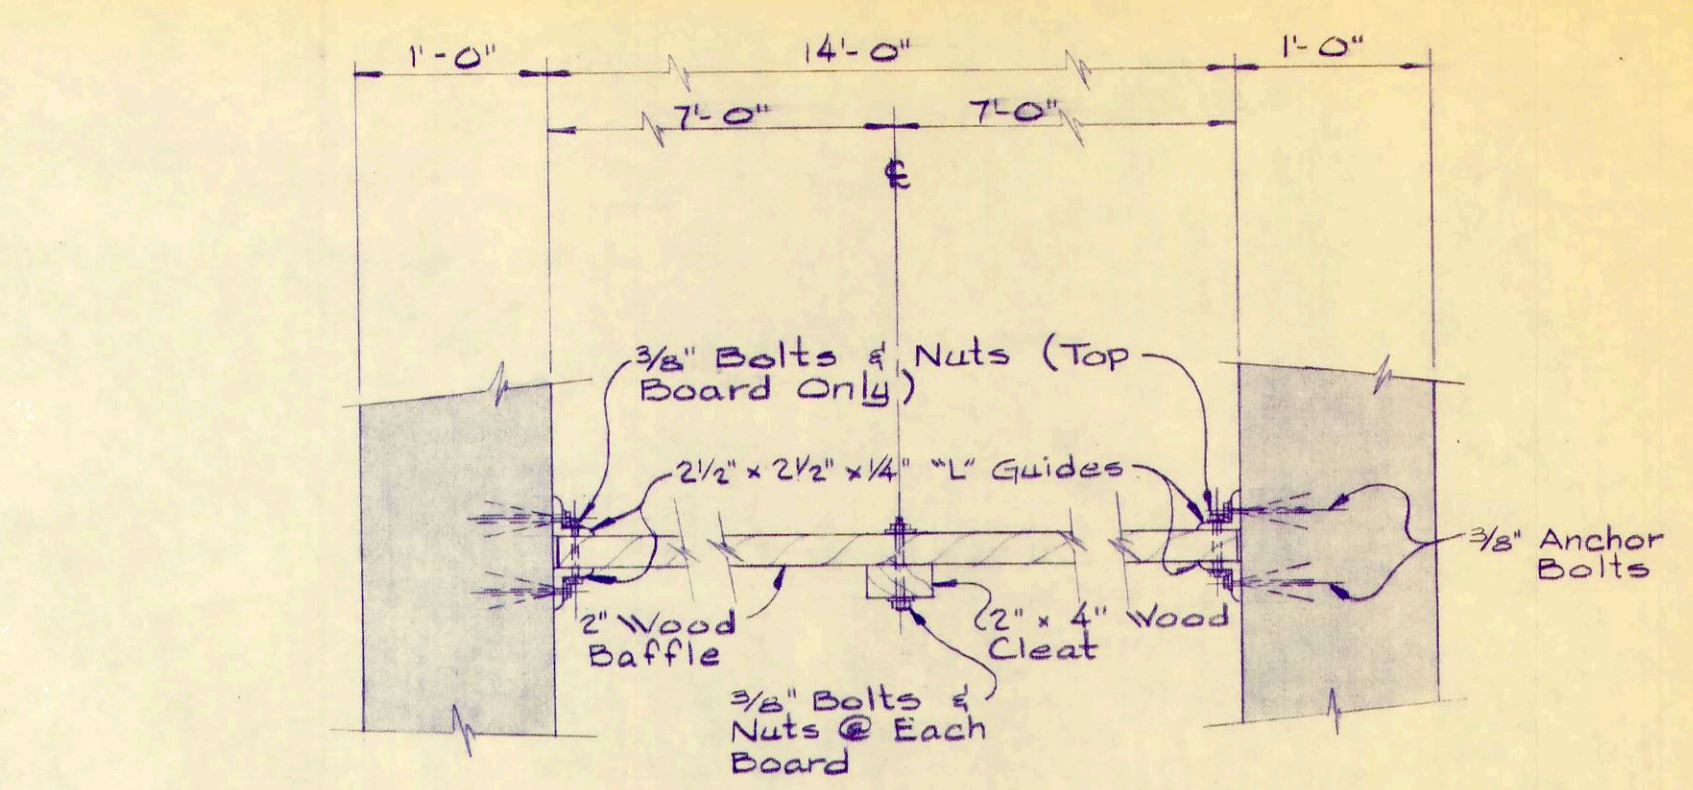 1'-0" 14'-0" 1'-0"
7'-0" 7'-0"
℄
3/8" Bolts & Nuts (Top
Board Only)
2 1/2" x 2 1/2" x 1/4" "L" Guides
3/8" Anchor
Bolts
2" Wood
Baffle
2" x 4" Wood
Cleat
3/8" Bolts &
Nuts @ Each
Board